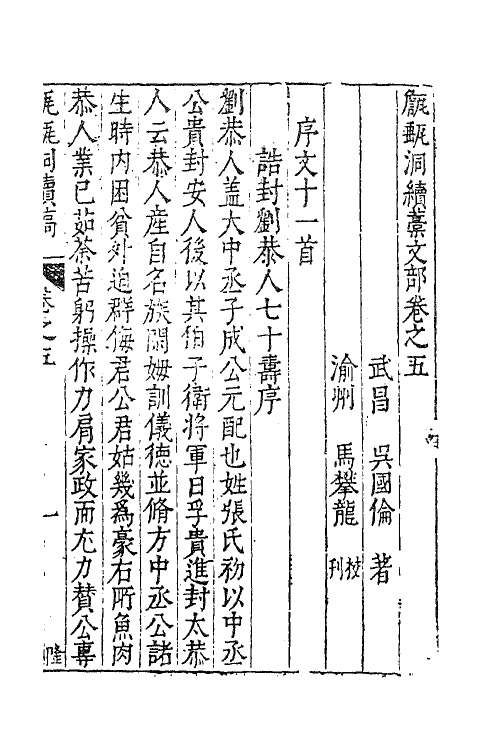 甔甀洞續藁文部卷之五
武昌 吳國倫 著
渝州 馬攀龍 校刊
序文十一首
誥封劉恭人七十壽序
劉恭人盖大中丞子成公元配也姓張氏初以中丞
公貴封安人後以其伯子衛將軍日孚貴進封太恭
人云恭人產自名族閑姆訓儀德並脩方中丞公諸
生時内困貧外迫群侮君公君姑幾爲豪右所魚肉
恭人業已茹荼苦躬操作力肩家政而尤力贊公專
甔甀洞續稿 卷之五 一